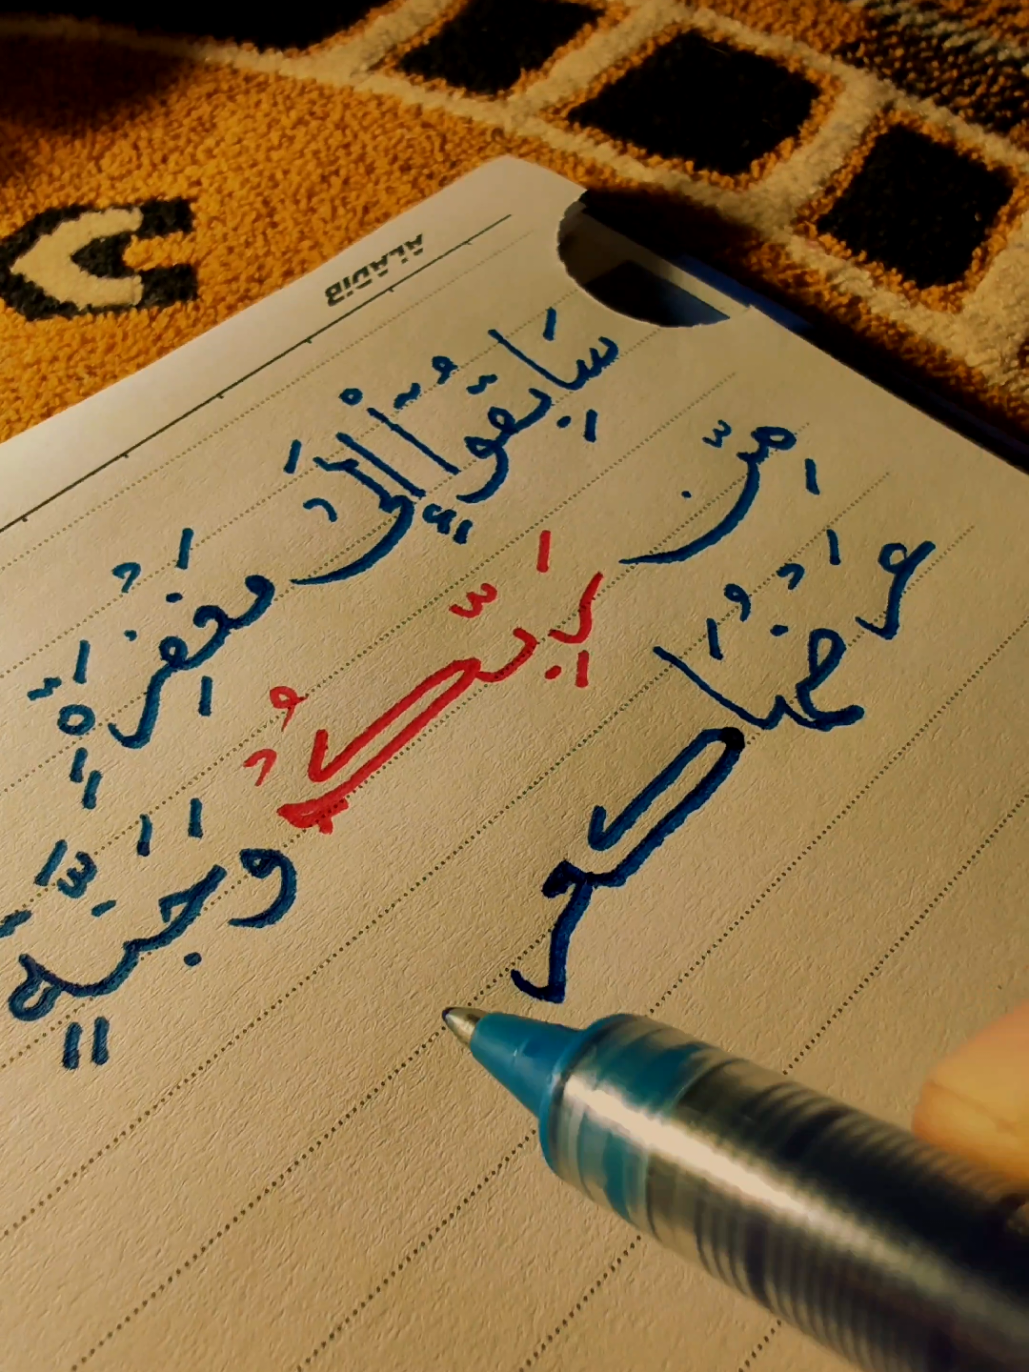 ALADIB
سَابِقُوٓا۟ إِلَىٰ مَغْفِرَةٍ
مِّن رَبِّكُمْ وَجَنَّةٍ
عَرْضُهَا كعر